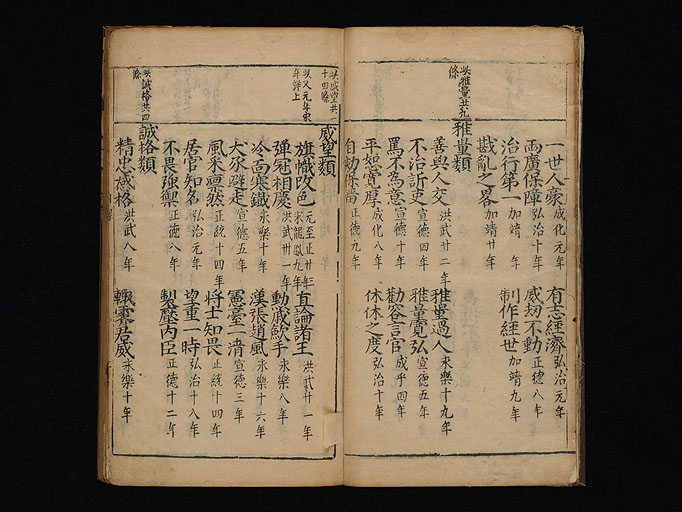 一世人豪成化元年 有志經濟弘治元年
兩廣保障弘治十年 威刼不動正德八年
治行第一加靖 年 制作經世加靖九年
戡亂之畧加靖廿年
共雅量共九條
雅量類
善與人交洪武廿二年 雅量過人永樂十九年
不治訢吏宣德四年 雅量寬弘宣德五年
罵不為意宣德十年 勸容言官成乎四年
平如寬厚成化八年 休休之度弘治十年
自勅保晋正德九年
共威望共一十四條
威望類
以又元年東年詳上
旌幟改色元至正廿年 直論諸王洪武廿一年
彈冠相慶洪武廿一年 動戚歛手永樂八年
冷面寒鐵永樂十年 漢張趙風永樂十六年
大豕避走宣德五年 憲臺一清宣德三年
風采凜然正統十四年 將士知畏正統十四年
居官知名弘治元年 望重一時弘治十八年
不畏強禦正德八年 製壓內臣正德十二年
共誠格共四條
誠格類
精忠感格洪武八年 輙霽君威永樂十年